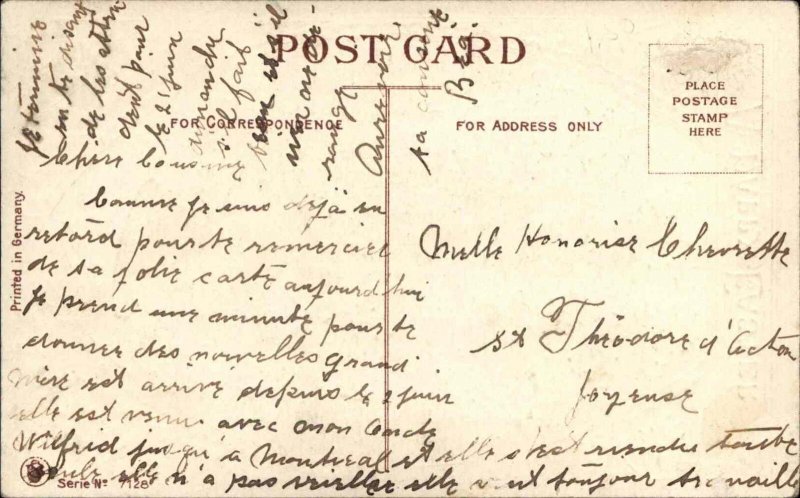 POST CARD
FOR CORRESPONDENCE
FOR ADDRESS ONLY
PLACE
POSTAGE
STAMP
HERE
Printed in Germany.
Chère Cousine
Comme je suis déjà en
retord pour te remercier
de ta jolie carte aujourd hui
je prend une minute pour te
donner des nouvelles grand
mère est arrivé depuis le 2 juin
elle est venu avec mon oncle
Wilfrid jusqu'a Montreal et elle s'est rendu toute
seule elle n'a pas veillee elle veut toujour travaille
je termine
en te disant
de les atten
dent pour
le 21 juin
dimanche
s'il fait
beau et s'il
non de dé-
rangé
Aurevoir
ta cousine
Melle Honorise Chevrette
St Théodore d'Acton
Joyeuse
Serie No 7128